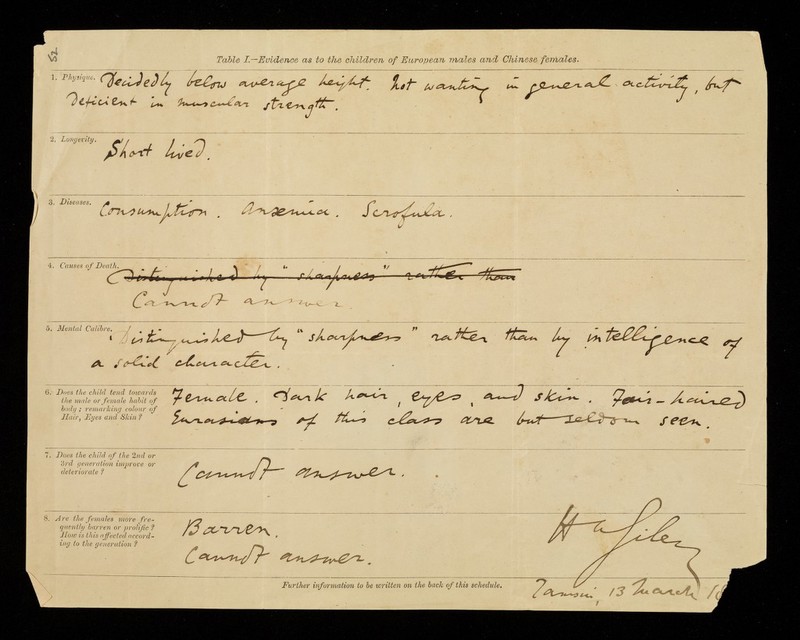 52
Table I.—Evidence as to the children of European males and Chinese females.
1. Physique. Decidedly below average height. Not wanting in general activity, but
Deficient in muscular strength.
2. Longevity. Short lived.
3. Diseases. Consumption. Anæmia. Scrofula.
4. Causes of Death. Distinguished by "sharpness" rather than
Cannot answer.
5. Mental Calibre. Distinguished by "sharpness" rather than by intelligence of
a solid character.
6. Does the child tend towards
the male or female habit of
body; remarking colour of
Hair, Eyes and Skin?
Female. Dark hair, eyes, and skin. Fair-haired
Eurasians of this class are but seldom seen.
7. Does the child of the 2nd or
3rd generation improve or
deteriorate?
Cannot answer.
8. Are the females more fre-
quently barren or prolific?
How is this affected accord-
ing to the generation?
Barren.
Cannot answer.
H A Giles
Further information to be written on the back of this schedule.
Tamsui, 13 March 18